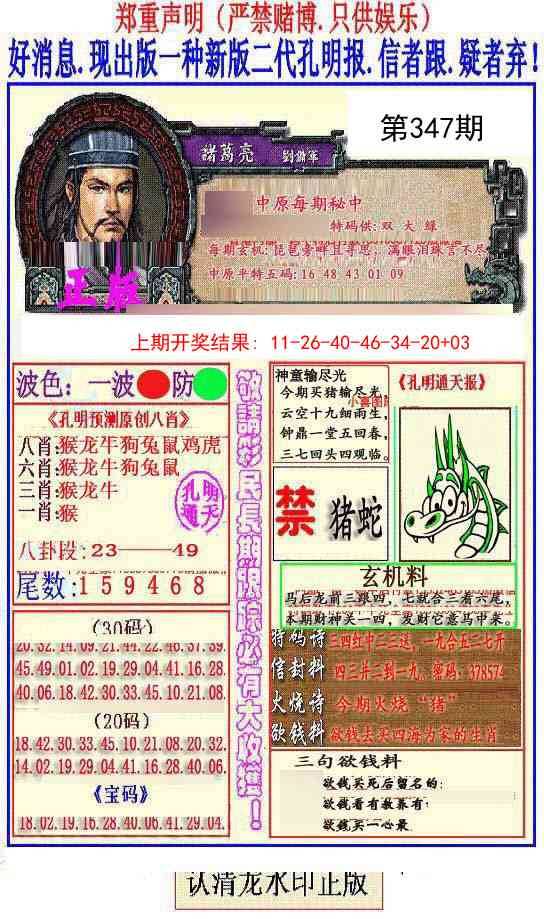 郑重声明（严禁赌博.只供娱乐）
好消息.现出版一种新版二代孔明报.信者跟.疑者弃！
第347期
諸葛亮 劉備軍
中原每期秘中
特码供:双 大 綠
每期玄机:琵琶旁畔且寻思，满眼泪珠言不尽
中原平特五码:16 48 43 01 09
正版
上期开奖结果：11-26-40-46-34-20+03
波色：一波 防
《孔明预测原创八肖》
八肖:猴龙牛狗兔鼠鸡虎
六肖:猴龙牛狗兔鼠
三肖:猴龙牛
一肖:猴
孔明
通天
八卦段:23——49
尾数:159468
(30码)
20.32.14.09.21.44.22.48.37.39.
45.49.01.02.19.29.04.41.16.28.
40.06.18.42.30.33.45.10.21.08.
(20码)
18.42.30.33.45.10.21.08.20.32.
14.02.19.29.04.41.16.28.40.06.
《宝码》
18.02.19.16.28.40.06.41.29.04.
敬請彩民長期跟踪必有大收獲！
神童输尽光
今期买猪输尽光，
云空十九细雨生，
钟鼎一堂五回春，
三七回头四观临。
禁
猪蛇
《孔明通天报》
玄机料
马后龙前三跟四，七就合二看六尾，
本期财神买一四，发财它意马中来。
特码诗 三四红中二三送，一九合五三七开
信封料 四三并二到一九。密码：378574
火烧诗 今期火烧“猪”
欲钱料 欲钱去买四海为家的生肖
三句欲钱料
欲钱买死后留名的:
欲钱看有教养有:
欲钱买一心最
认清龙水印正版